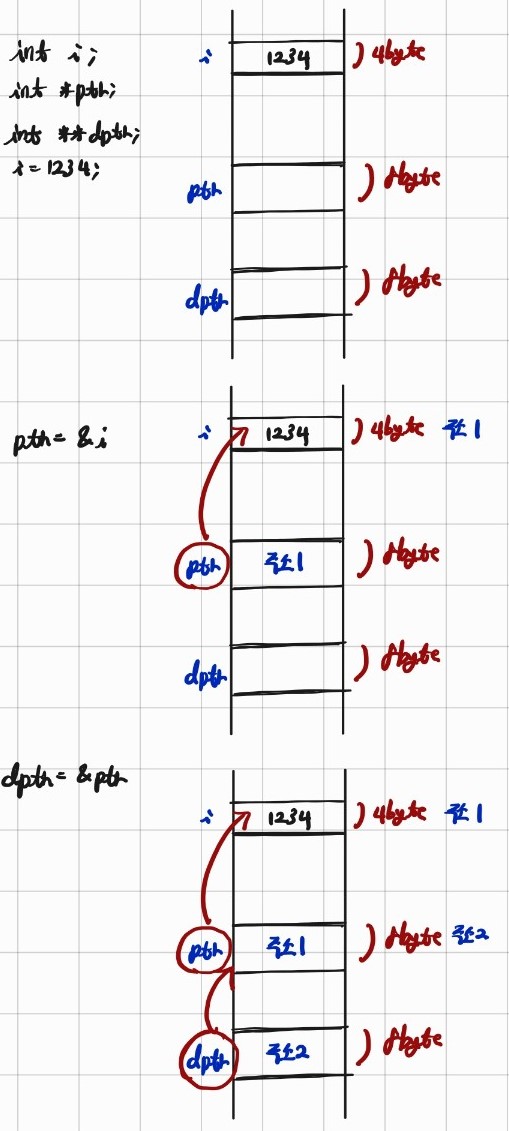 int i;
int *ptr;
int **dptr;
i = 1234;
i 1234 ) 4byte
ptr ) 8byte
dptr ) 8byte
ptr = &i
i 1234 ) 4byte 주소1
ptr 주소1 ) 8byte
dptr ) 8byte
dptr = &ptr
i 1234 ) 4byte 주소1
ptr 주소1 ) 8byte 주소2
dptr 주소2 ) 8byte